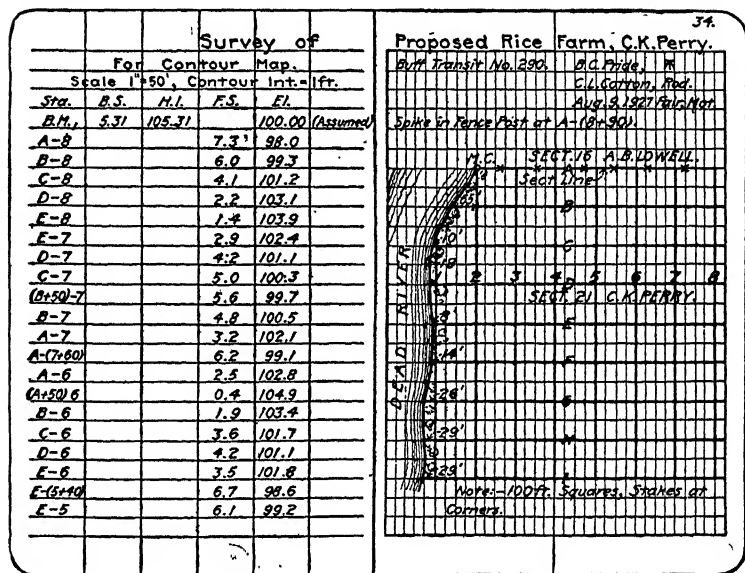 34.
Survey of Proposed Rice Farm, C.K.Perry.
For Contour Map.
Scale 1"=50', Contour Int.=1ft.
Sta. B.S. H.I. F.S. El.
B.M., 5.31 105.31 100.00 (Assumed)
A-8 7.3 98.0
B-8 6.0 99.3
C-8 4.1 101.2
D-8 2.2 103.1
E-8 1.4 103.9
E-7 2.9 102.4
D-7 4.2 101.1
C-7 5.0 100.3
(B+50)-7 5.6 99.7
B-7 4.8 100.5
A-7 3.2 102.1
A-(7+60) 6.2 99.1
A-6 2.5 102.8
(A+50) 6 0.4 104.9
B-6 1.9 103.4
C-6 3.6 101.7
D-6 4.2 101.1
E-6 3.5 101.8
E-(5+40) 6.7 98.6
E-5 6.1 99.2
Buff Transit No. 290. B.C. Pride,
C.L. Cotton, Rod.
Aug. 9, 1927 Fair, Hot
Spike in Fence Post at A-(8+90).
M.C. SECT. 16 A.B. LOWELL.
Sect Line
A
65'
B
10'
C
18'
DEAD RIVER
2 3 4 D 5 6 7 8
SECT. 21 C.K. PERRY.
8'
E
14'
F
26'
G
29'
H
29'
Note:-100ft. Squares, Stakes at
Corners.